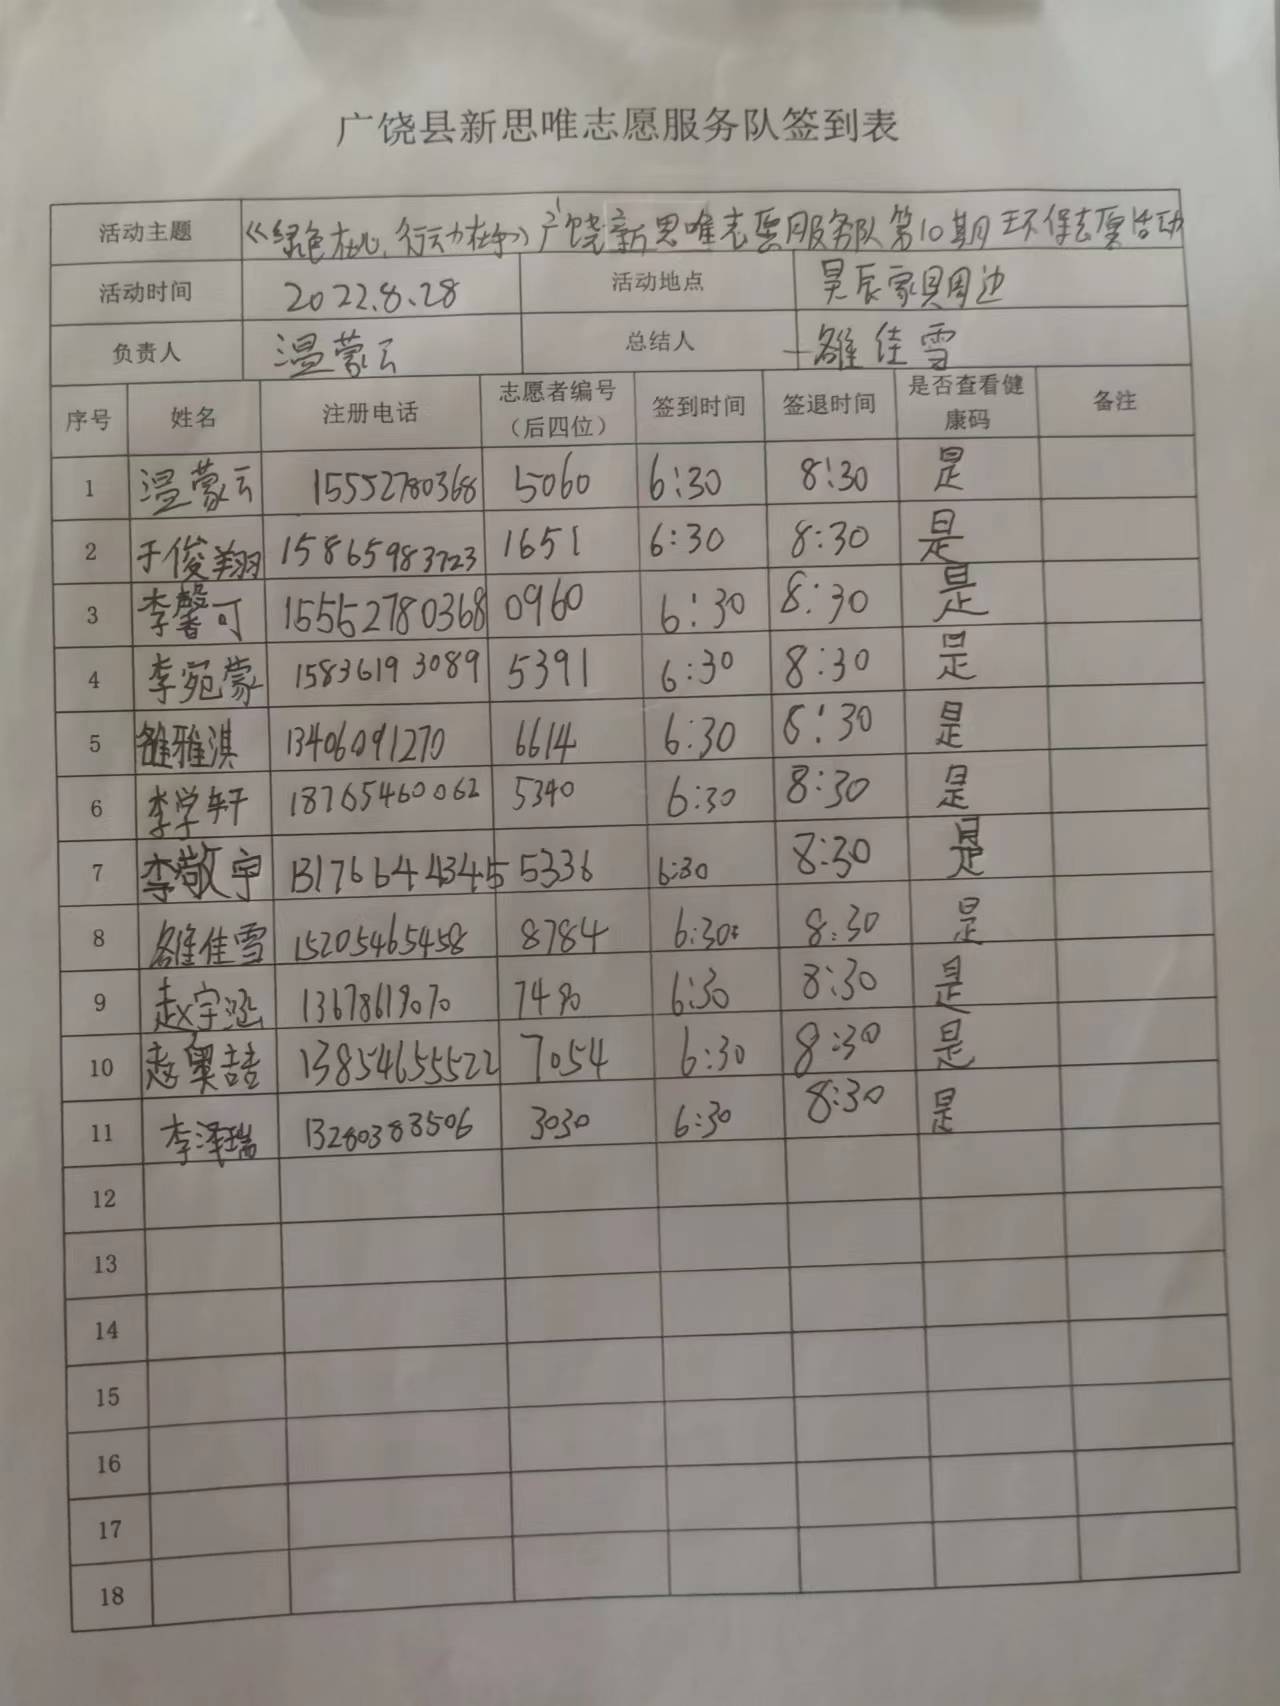 广饶县新思唯志愿服务队签到表
活动主题 《绿色在心，行动在手》广饶新思唯志愿服务队第10期环保志愿活动
活动时间 2022.8.28 活动地点 昊辰家具周边
负责人 温蒙云 总结人 雒佳雪
序号 姓名 注册电话 志愿者编号（后四位） 签到时间 签退时间 是否查看健康码 备注
1 温蒙云 15552780368 5060 6:30 8:30 是
2 于俊翔 15865983723 1651 6:30 8:30 是
3 李馨可 15552780368 0960 6:30 8:30 是
4 李宛蒙 15836193089 5391 6:30 8:30 是
5 雒雅淇 13406091270 6614 6:30 8:30 是
6 李学轩 18765460062 5340 6:30 8:30 是
7 李敬宇 13176644345 5336 6:30 8:30 是
8 雒佳雪 15205465458 8784 6:30 8:30 是
9 赵宇涵 13678619070 7490 6:30 8:30 是
10 赵奥喆 13854655522 7054 6:30 8:30 是
11 李泽瑞 13280383506 3030 6:30 8:30 是
12
13
14
15
16
17
18